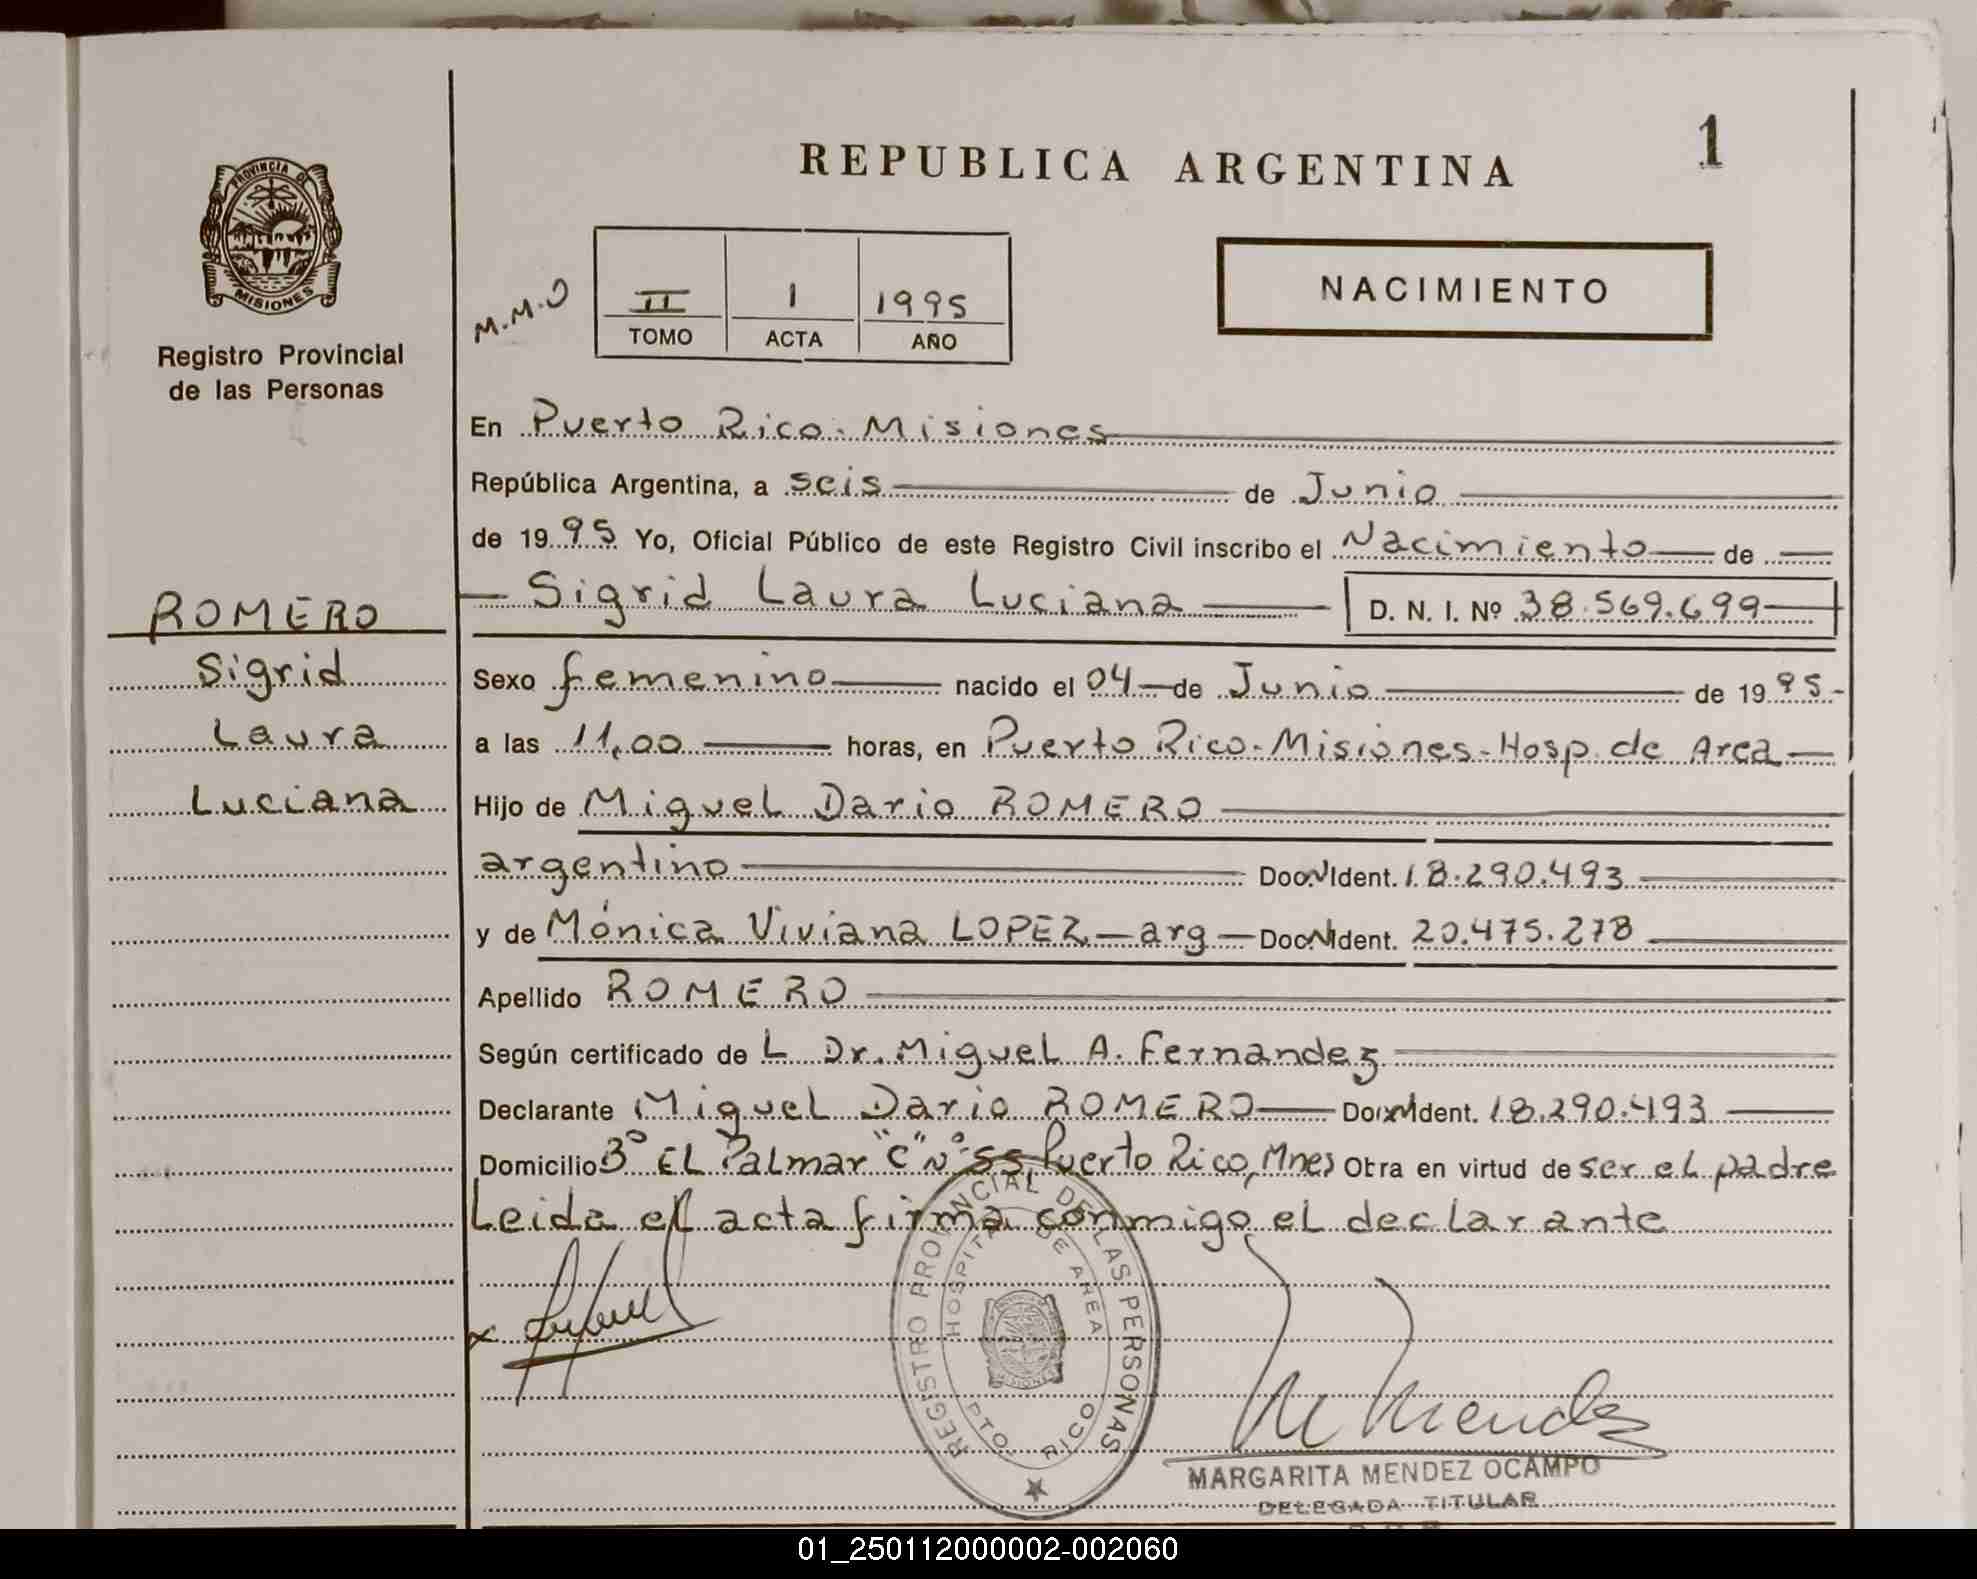 REPUBLICA ARGENTINA
1
PROVINCIA DE
MISIONES
Registro Provincial
de las Personas
M.M.O
II
TOMO
1
ACTA
1995
AÑO
NACIMIENTO
En Puerto Rico. Misiones
República Argentina, a seis de Junio
de 1995 Yo, Oficial Público de este Registro Civil inscribo el Nacimiento de
Sigrid Laura Luciana D. N. I. Nº 38.569.699
ROMERO
Sigrid
Laura
Luciana
Sexo femenino nacido el 04 de Junio de 1995
a las 11,00 horas, en Puerto Rico. Misiones. Hosp. de Area
Hijo de Miguel Dario ROMERO
argentino Doc. Ident. 18.290.493
y de Mónica Viviana LOPEZ arg Doc. Ident. 20.475.278
Apellido ROMERO
Según certificado de L Dr. Miguel A. Fernandez
Declarante Miguel Dario ROMERO Doc. Ident. 18.290.493
Domicilio Bº EL Palmar "C" Nº 55 Puerto Rico, Mnes Obra en virtud de ser el padre
Leida el acta firma conmigo el declarante
REGISTRO PROVINCIAL DE LAS PERSONAS
HOSPITAL DE AREA
PTO. RICO
M Mendez
MARGARITA MENDEZ OCAMPO
DELEGADA TITULAR
01_250112000002-002060